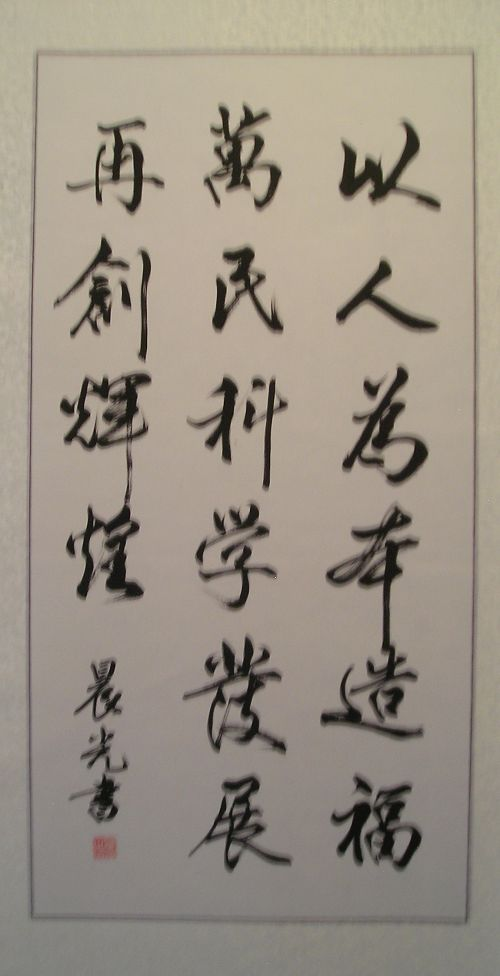 以人為本造福
萬民科学發展
再創輝煌
晨光書